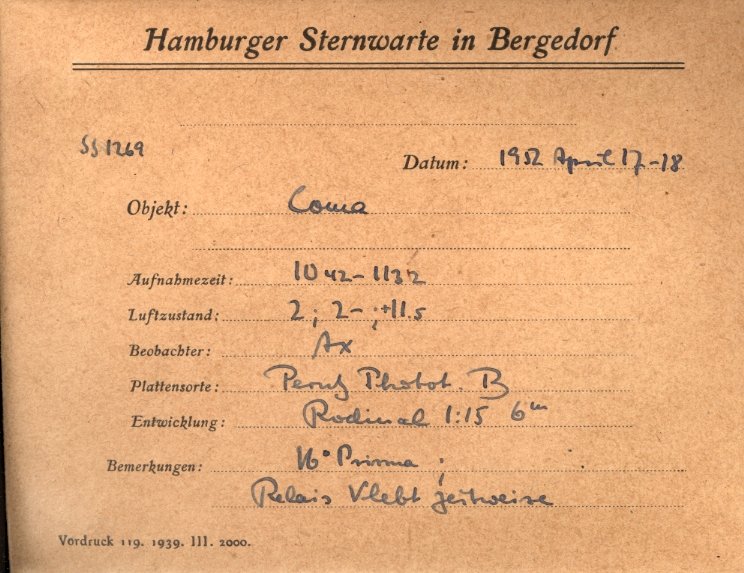 Hamburger Sternwarte in Bergedorf
SS1269
Datum: 1952 April 17-18
Objekt: Coma
Aufnahmezeit: 10 42 - 11 32
Luftzustand: 2; 2-; +11.5
Beobachter: Ax
Plattensorte: Perutz Photot. B
Entwicklung: Rodinal 1:15 6m
Bemerkungen: 16° Prisma;
Relais klebt zeitweise
Vordruck 119. 1939. III. 2000.